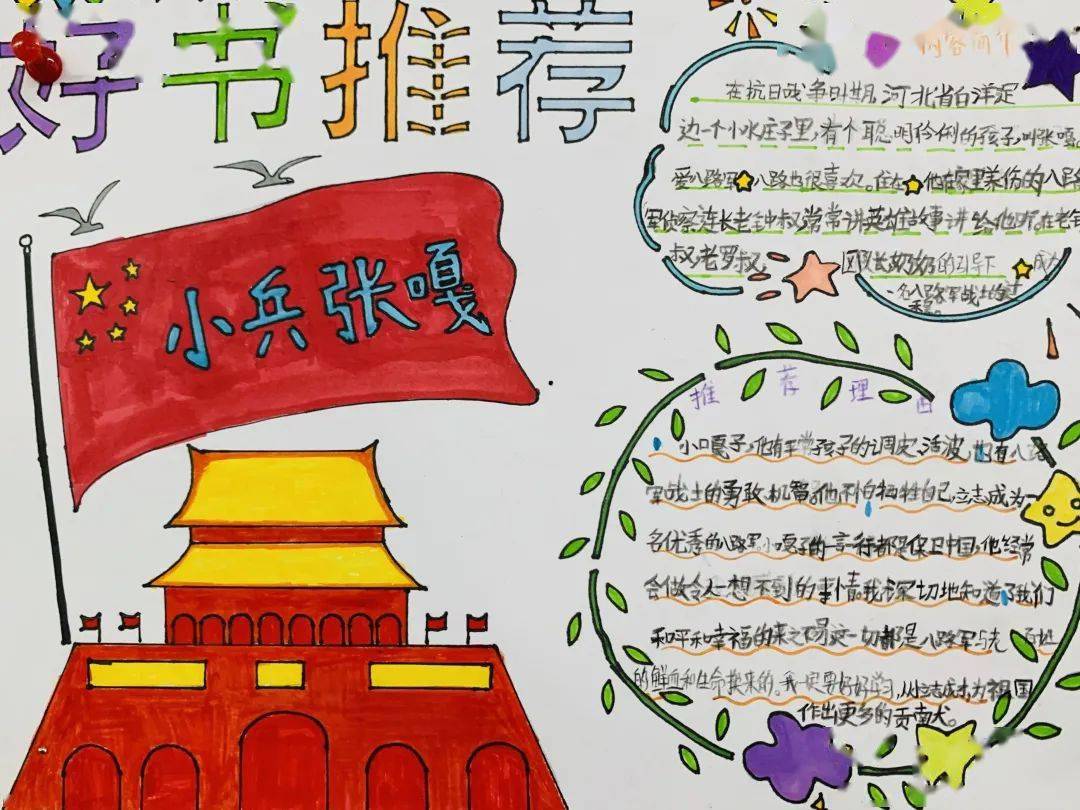 好书推荐
小兵张嘎
内容简介
在抗日战争时期,河北省白洋淀
边一个小水庄子里,有个聪明伶俐的孩子,叫张嘎。
爱八路军 八路也很喜欢。住在 他在家里养伤的八路
军侦察连长老钟叔常常讲英雄故事讲给他听。在老钟
叔老罗叔, 区队长奶奶的引导下 成为
一名八路军战士的
推荐理由
小嘎子,他有平常孩子的调皮、活波,也有八路
军战士的勇敢、机智。他不怕牺牲自己,立志成为一
名优秀的八路军,小嘎子的一言一行都是保卫中国,他经常
会做令人想不到的事情。我深切地知道了我们
和平和幸福的来之不易这一切都是八路军与先
的鲜血和生命换来的。我一定要好好学习,从小立志成才为祖国
作出更多的贡南犬。